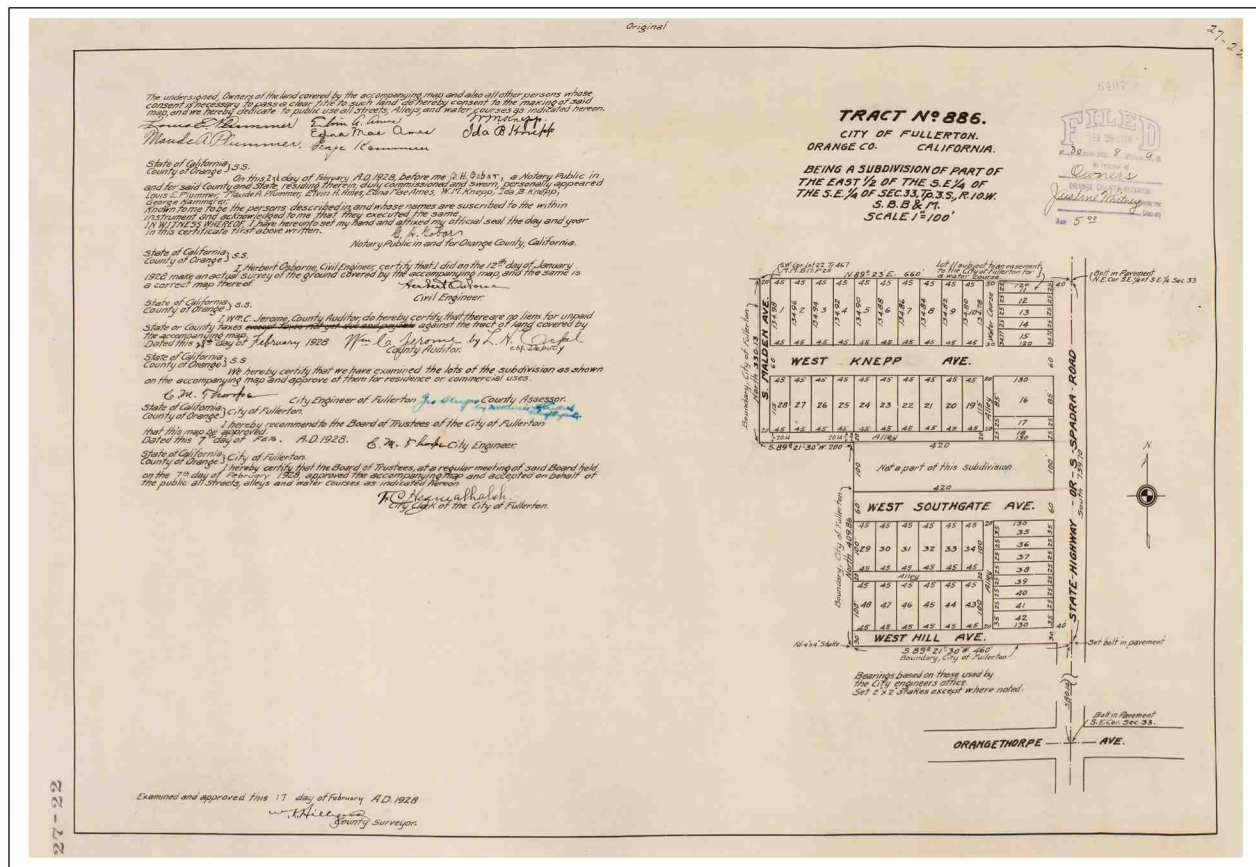 Original
27-22
The undersigned, Owners of the land covered by the accompanying map and also all other persons whose
consent is necessary to pass a clear title to such land do hereby consent to the making of said
map, and we hereby dedicate to public use all Streets, Alleys, and water courses as indicated hereon.
Louis E. Plummer Elvin A. Ames W M Knepp
Maude A Plummer Edna Mae Ames Ida B Knepp
George Kammerer
State of California
County of Orange } S.S.
On this 2nd day of February A.D. 1928, before me G.H. Gobar, a Notary Public in
and for said County and State, residing therein, duly commissioned and sworn, personally appeared
Louis E. Plummer, Maude A. Plummer, Elvin A. Ames, Edna Mae Ames, W.M. Knepp, Ida B. Knepp,
George Kammerer,
Known to me to be the persons described in and whose names are suscribed to the within
instrument and acknowledged to me that they executed the same.
IN WITNESS WHEREOF, I have hereunto set my hand and affixed my official seal the day and year
in this certificate first above written.
G. H. Gobar
Notary Public in and for Orange County, California.
State of California
County of Orange } S.S.
I, Herbert Osborne, Civil Engineer, certify that I did on the 12th day of January
1928 make an actual survey of the ground covered by the accompanying map, and the same is
a correct map thereof.
Herbert Osborne
Civil Engineer.
State of California
County of Orange } S.S.
I, Wm. C. Jerome, County Auditor, do hereby certify that there are no liens for unpaid
State or County taxes except taxes not yet due and payable against the tract of land covered by
the accompanying map.
Dated this day of February 1928 Wm. C. Jerome by L. H.
County Auditor. Deputy
State of California
County of Orange } S.S
We hereby certify that we have examined the lots of the subdivision as shown
on the accompanying map and approve of them for residence or commercial uses.
C. M. Thorpe
City Engineer of Fullerton County Assessor.
State of California
County of Orange } City of Fullerton.
I hereby recommend to the Board of Trustees of the City of Fullerton
that this map be approved.
Dated this 7th day of Feb. A.D. 1928. C. M. Thorpe City Engineer.
State of California
County of Orange } City of Fullerton.
I hereby certify that the Board of Trustees, at a regular meeting of said Board held
on the 7th day of February 1928, approved the accompanying map and accepted on behalf of
the public all Streets, alleys and water courses as indicated hereon
City Clerk of the City of Fullerton.
Examined and approved this 17 day of February A.D. 1928
County Surveyor.
27-22
TRACT Nº 886.
CITY OF FULLERTON.
ORANGE CO. CALIFORNIA.
BEING A SUBDIVISION OF PART OF
THE EAST 1/2 OF THE S.E. 1/4 OF
THE S.E. 1/4 OF SEC. 33, Tp. 3 S., R. 10 W.
S. B. B & M.
SCALE 1"=100'
FILED
30 8 a
Owners
Justine Whitney
5 00
S.W. Cor. Lot 22 Tr. 467
N. 89° 23' E. 660'
lot 11 subject to an easement
to the City of Fullerton for
a water course.
Bolt in Pavement
N.E. Cor. S.E. 1/4 of S.E. 1/4 Sec. 33
20 45 45 45 45 45 45 45 45 45 45 30 120 40
1 2 3 4 5 6 7 8 9 10
11
12
13
14
15
Water Course
45 45 45 45 45 45 45 45 45 45
Boundary, City of Fullerton
North 330.13
S. MALDEN AVE.
60
WEST KNEPP AVE.
60
45 45 45 45 45 45 45 45 45 45 20 130
28 27 26 25 24 23 22 21 20 19
Alley
16
17
18
45 45 45 45 45 45 45 45 45 45 20 130
Alley
S. 89° 21'-30" W. 200'
420
100
Not a part of this subdivision
100
420
60
WEST SOUTHGATE AVE.
60
45 45 45 45 45 45 20 130
29 30 31 32 33 34
35
36
37
38
45 45 45 45 45 45
Alley
39
40
45 45 45 45 45 45
48 47 46 45 44 43
41
42
45 45 45 45 45 45 20 130 40
Alley
Boundary, City of Fullerton
North 409.86
STATE-HIGHWAY -OR- S.-SPADRA ROAD
South 739.70
N.
Fd. 4"x4" Stake
30
WEST HILL AVE.
30
Set bolt in pavement
S. 89° 21'-30" W. 460'
Boundary, City of Fullerton
Bearings based on those used by
the City engineers office.
Set 2"x2" stakes except where noted.
Bolt in Pavement
S.E. Cor. Sec. 33.
ORANGETHORPE AVE.